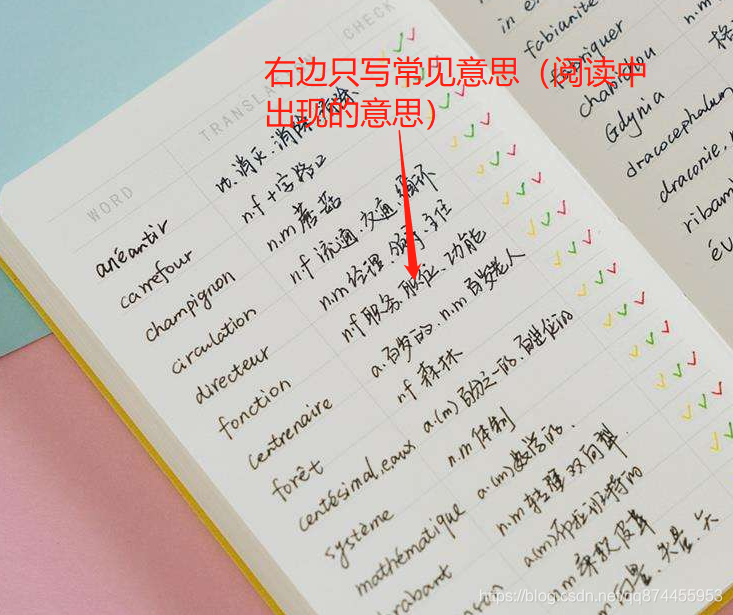 WORD TRANSLA CHECK
右边只写常见意思（阅读中
出现的意思）
anéantir vt.消灭.消除
carrefour n.f 十字路口
champignon n.m 蘑菇
circulation n.f 流通.交通.循环
directeur n.m 经理.领导.主任
fonction n.f 职务.职位.功能
centrenaire a.百岁的.n.m 百岁老人
forêt nf 森林
centésimal,eaux a.(m)百分之一的.百进位的
système n.m 体制
mathématique a.(m)数学的.
n.m
a(m)
柔软皮革
in e
fabianite
fabriquer
chabichou
Gdynia
dracocephalum
draconie,
ribam
év
n.m
https://blog.csdn.net/qq874455953